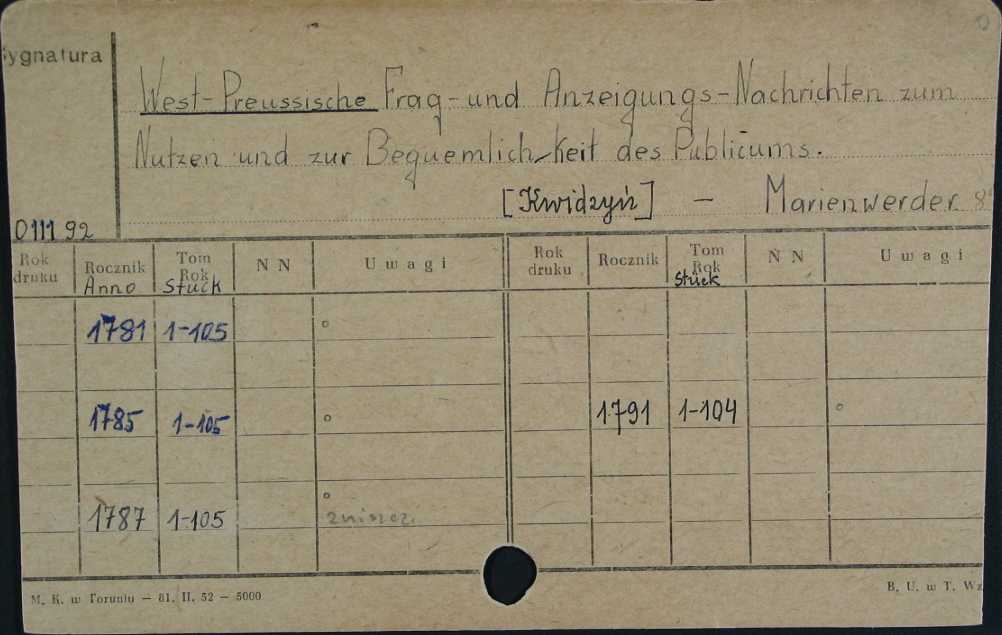 Sygnatura
West-Preussische Frag- und Anzeigungs-Nachrichten zum
Nutzen und zur Bequemlichkeit des Publicums.
[Kwidzyń] — Marienwerder 8°
011192
Rok druku Rocznik Anno Tom Rok Stück N N Uwagi Rok druku Rocznik Tom Rok Stück N N Uwagi
1781 1-105 °
1785 1-105 ° 1791 1-104 °
1787 1-105 °
zniszcz.
M. K. w Toruniu — 81. II. 52 — 5000 B. U. w T. Wz